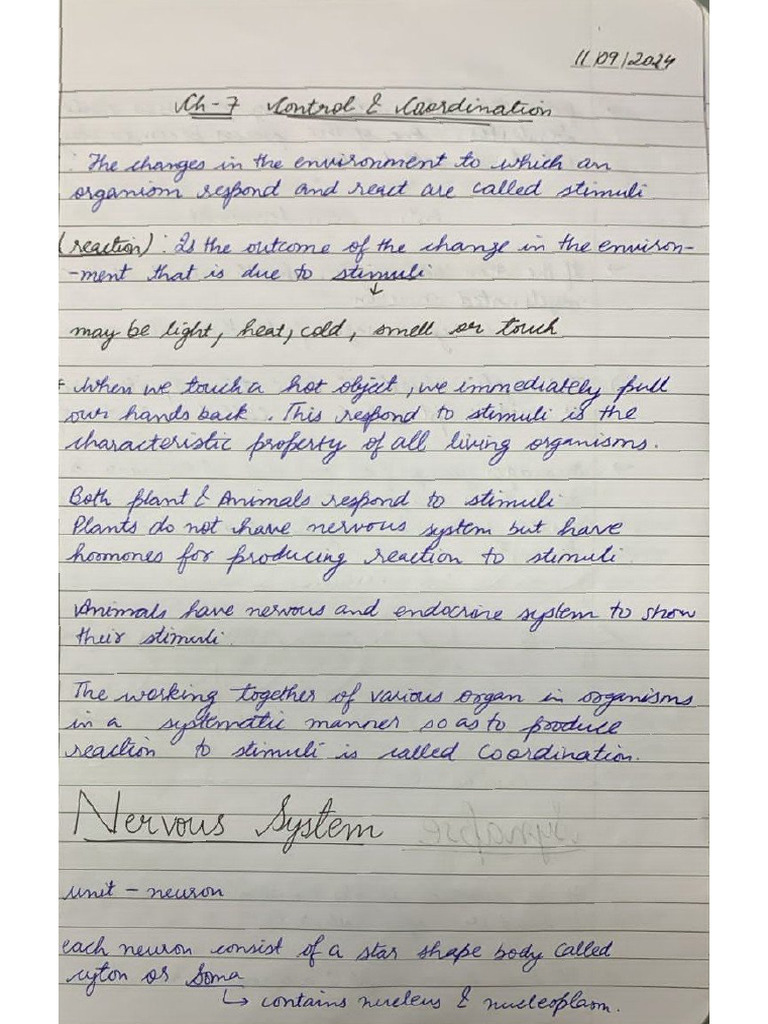 11/09/2024
Ch-7 Control & Coordination
: The changes in the environment to which an
organism respond and react are called stimuli
(reaction) : Is the outcome of the change in the environ-
-ment that is due to stimuli
↓
may be light, heat, cold, smell or touch
+ When we touch a hot object, we immediately pull
our hands back. This respond to stimuli is the
characteristic property of all living organisms.
Both plant & Animals respond to stimuli
Plants do not have nervous system but have
hormones for producing reaction to stimuli.
Animals have nervous and endocrine system to show
their stimuli.
The working together of various organ in organisms
in a systematic manner so as to produce
reaction to stimuli is called Coordination.
Nervous System
unit - neuron
each neuron consist of a star shape body called
cyton or Soma
↳ contains nucleus & nucleoplasm.